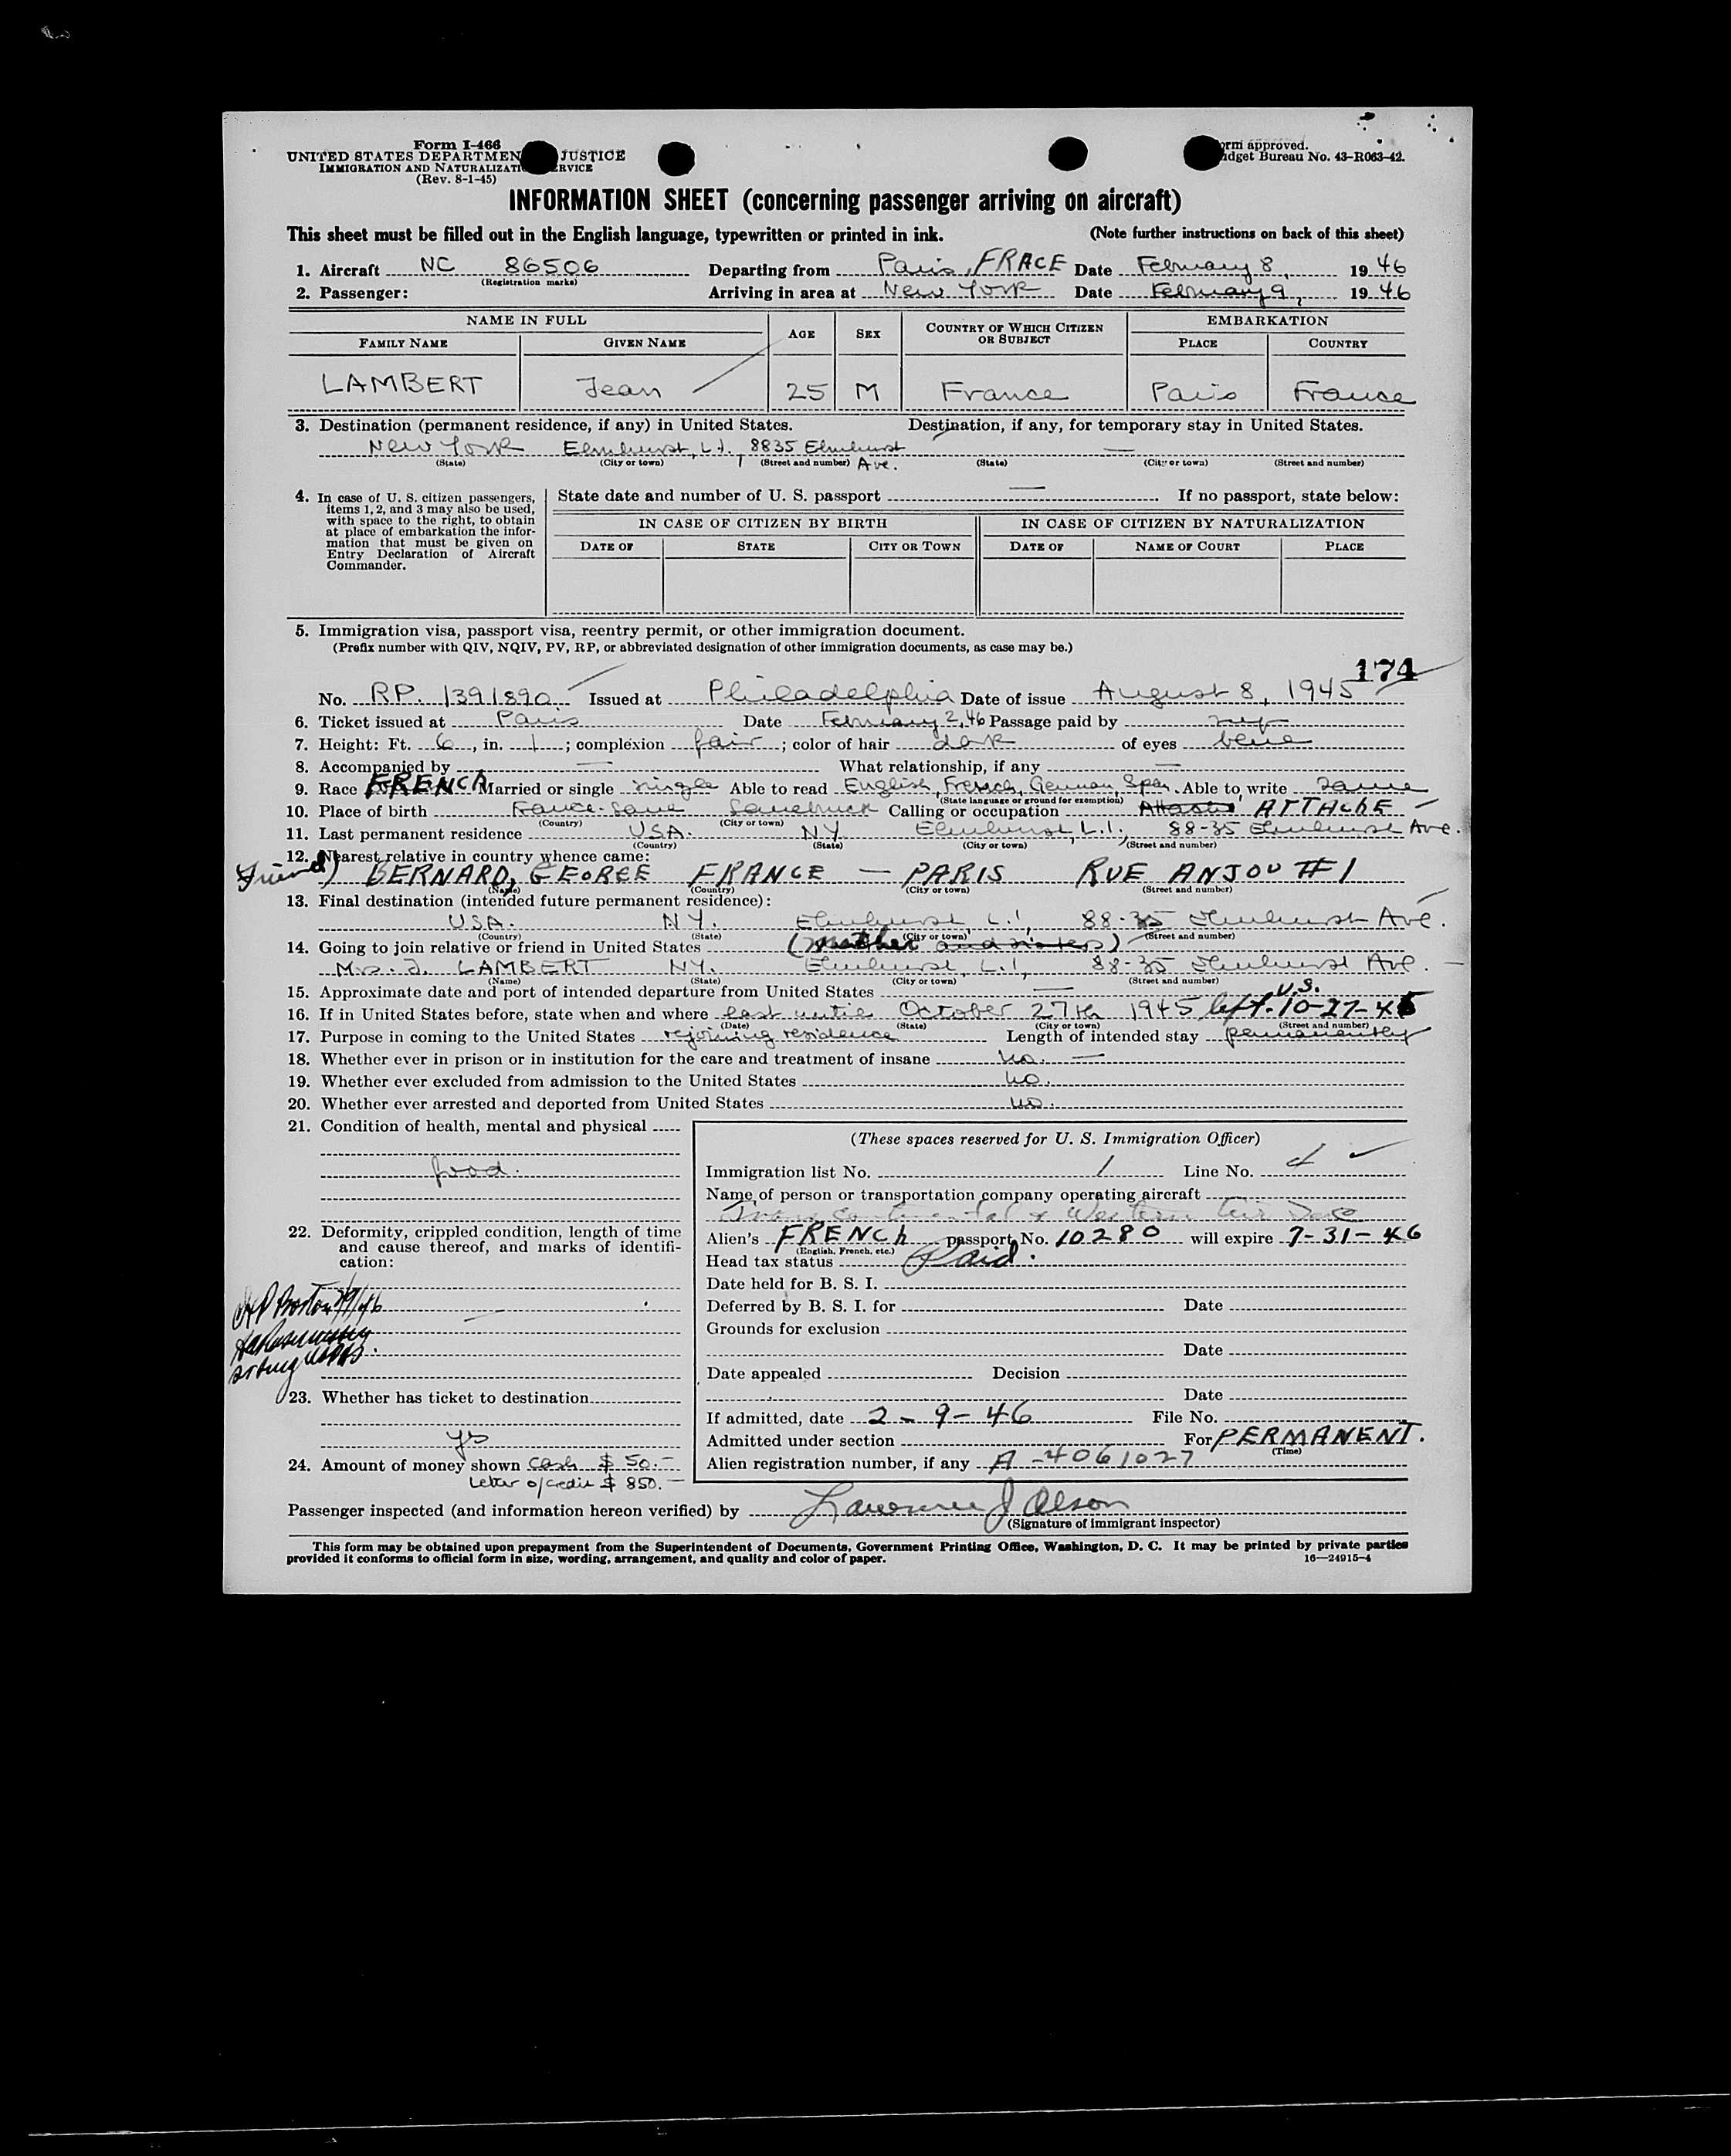 Form I-466
UNITED STATES DEPARTMEN JUSTICE
IMMIGRATION AND NATURALIZATI ERVICE
(Rev. 8-1-45)
orm approved.
dget Bureau No. 43-R063-42.
INFORMATION SHEET (concerning passenger arriving on aircraft)
This sheet must be filled out in the English language, typewritten or printed in ink. (Note further instructions on back of this sheet)
1. Aircraft NC 86506 Departing from Paris, FRACE Date February 8, 1946
(Registration marks)
2. Passenger: Arriving in area at New York Date February 9, 1946
NAME IN FULL AGE SEX COUNTRY OF WHICH CITIZEN OR SUBJECT EMBARKATION
FAMILY NAME GIVEN NAME PLACE COUNTRY
LAMBERT Jean 25 M France Paris France
3. Destination (permanent residence, if any) in United States. Destination, if any, for temporary stay in United States.
New York Elmhurst, L.I., 8835 Elmhurst Ave. —
(State) (City or town) (Street and number) (State) (City or town) (Street and number)
4. In case of U. S. citizen passengers, items 1, 2, and 3 may also be used, with space to the right, to obtain at place of embarkation the information that must be given on Entry Declaration of Aircraft Commander.
State date and number of U. S. passport — If no passport, state below:
IN CASE OF CITIZEN BY BIRTH IN CASE OF CITIZEN BY NATURALIZATION
DATE OF STATE CITY OR TOWN DATE OF NAME OF COURT PLACE
5. Immigration visa, passport visa, reentry permit, or other immigration document.
(Prefix number with QIV, NQIV, PV, RP, or abbreviated designation of other immigration documents, as case may be.)
174
No. RP. 1391890 Issued at Philadelphia Date of issue August 8, 1945
6. Ticket issued at Paris Date February 2, 46 Passage paid by
7. Height: Ft. 6, in. 1; complexion fair; color of hair dark of eyes blue
8. Accompanied by — What relationship, if any —
9. Race FRENCh Married or single single Able to read English, French, German, Span. Able to write same
(State language or ground for exemption)
10. Place of birth France-Sarre Calling or occupation Attaché ATTAChE
(Country) (City or town)
11. Last permanent residence USA. NY Elmhurst, L.I., 88-35 Elmhurst Ave.
(Country) (State) (City or town) (Street and number)
12. Nearest relative in country whence came:
Friend) BERNARD, GEORGE FRANCE — PARIS RUE ANJOU #1
(Name) (Country) (City or town) (Street and number)
13. Final destination (intended future permanent residence):
USA. NY. Elmhurst L.I., 88-35 Elmhurst Ave.
(Country) (State) (City or town) (Street and number)
14. Going to join relative or friend in United States (mother and sisters)
Mrs. J. LAMBERT NY. Elmhurst, L.I., 88-35 Elmhurst Ave.
(Name) (State) (City or town) (Street and number)
15. Approximate date and port of intended departure from United States —
16. If in United States before, state when and where last until October 27th 1945 left U.S. 10-27-45
(Date) (State) (City or town) (Street and number)
17. Purpose in coming to the United States rejoining residence Length of intended stay permanently
18. Whether ever in prison or in institution for the care and treatment of insane no. —
19. Whether ever excluded from admission to the United States no.
20. Whether ever arrested and deported from United States no.
21. Condition of health, mental and physical
good.
22. Deformity, crippled condition, length of time and cause thereof, and marks of identification:
—
23. Whether has ticket to destination
yes
24. Amount of money shown Cash $ 50.—
Letter o/credit $ 850.—
(These spaces reserved for U. S. Immigration Officer)
Immigration list No. 1 Line No.
Name of person or transportation company operating aircraft
Transcontinental & Western Air Inc
Alien's FRENCh passport No. 10280 will expire 7-31-46
(English, French, etc.)
Head tax status Paid.
Date held for B. S. I.
Deferred by B. S. I. for Date
Grounds for exclusion
Date
Date appealed Decision
Date
If admitted, date 2-9-46 File No.
Admitted under section For PERMANENT.
(Time)
Alien registration number, if any A-4061027
Passenger inspected (and information hereon verified) by Lawrence J Olson
(Signature of immigrant inspector)
This form may be obtained upon prepayment from the Superintendent of Documents, Government Printing Office, Washington, D. C. It may be printed by private parties
provided it conforms to official form in size, wording, arrangement, and quality and color of paper. 16—24915-4